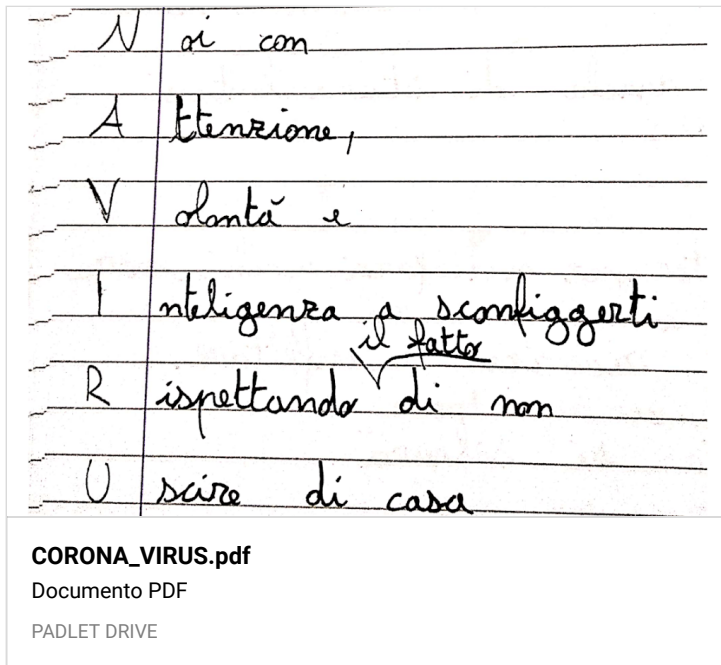 N oi con
A ttenzione,
V olontà e
I nteligenza a sconfiggerti
il fatto
R ispettando di non
U scire di casa
CORONA_VIRUS.pdf
Documento PDF
PADLET DRIVE